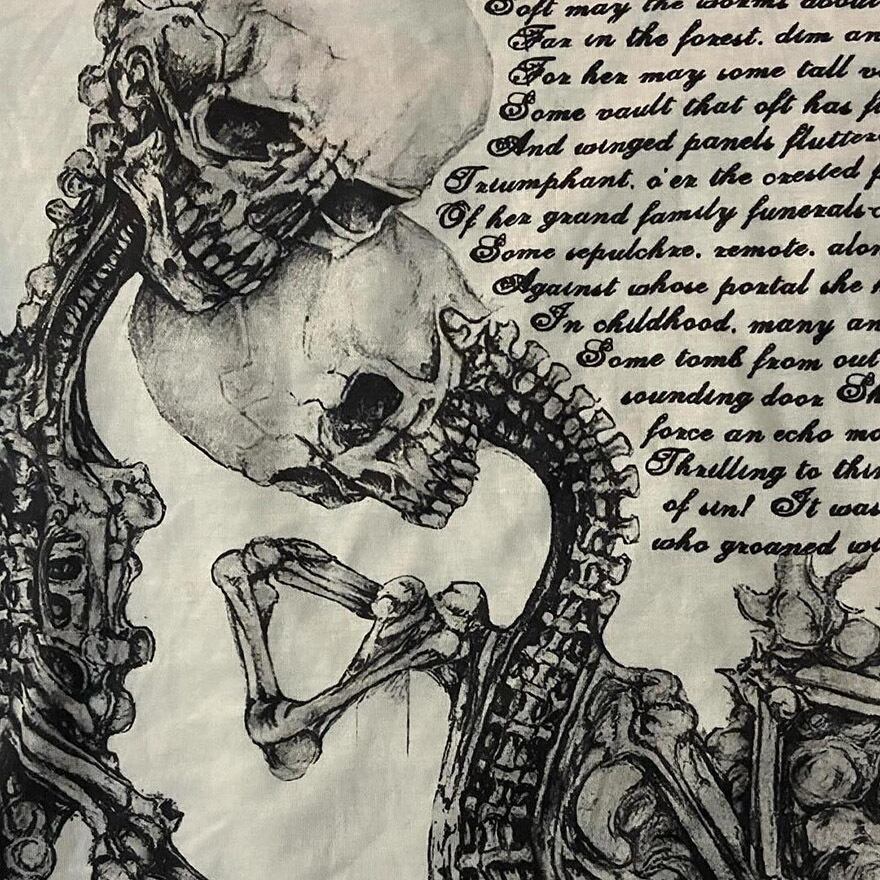 Soft may the worms about
Far in the forest, dim an
For her may some tall v
Some vault that oft has f
And winged panels flutter
Triumphant, o'er the crested p
Of her grand family funerals-
Some sepulchre, remote, alon
Against whose portal she h
In childhood, many an
Some tomb from out
sounding door Sh
force an echo mo
Thrilling to thin
of sin! It was
who groaned wi